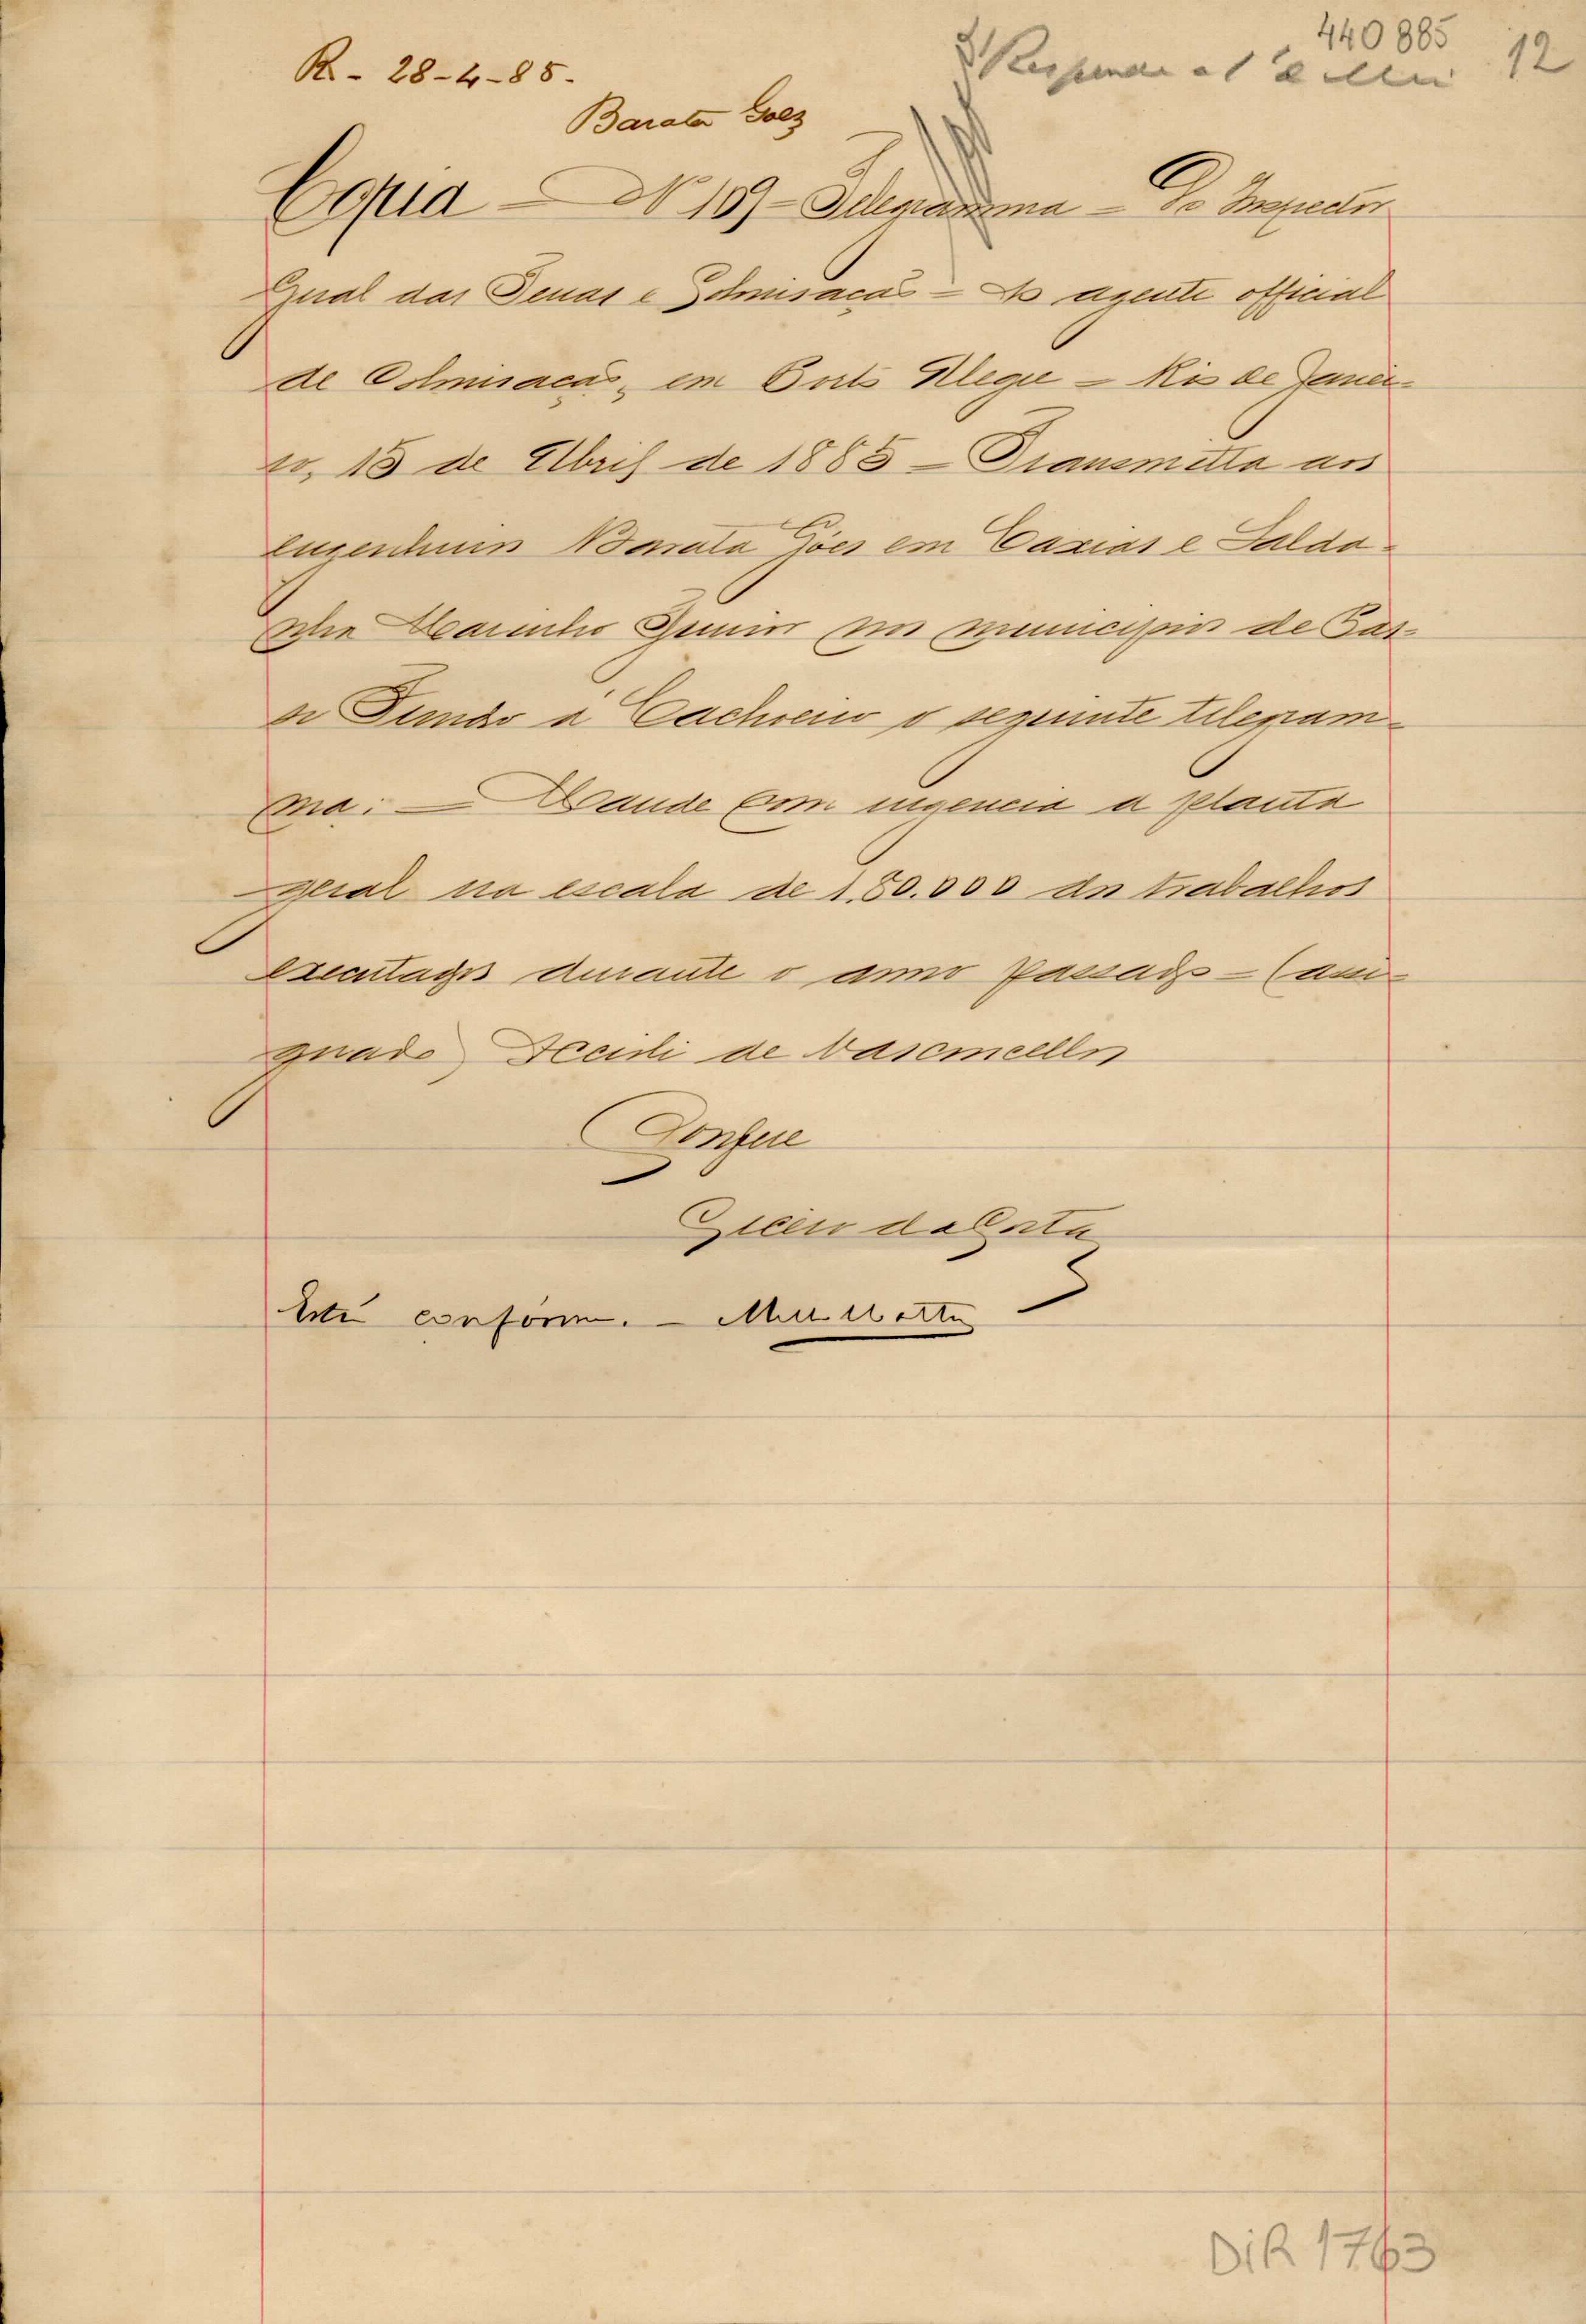 440885
12
R - 28-4-85.
Barata Goez
Copia - Nº 109 - Telegramma - Do Inspector
Geral das Terras e Colonisação - Ao agente official
de Colonisação, em Porto Alegre - Rio de Janei-
ro, 15 de Abril de 1885 - Transmitta aos
Engenheiros Barata Góes em Caxias e Salda-
nha Marinho Junior no municipio de Pas-
so Fundo a Cachoeira o seguinte telegram-
ma: - Mande com urgencia a planta
geral na escala de 1.50.000 dos trabalhos
executados durante o anno passado - (assi-
gnado) Accioli de Vasconcellos
Confere
da Costa
Está conforme.
DiR 1763